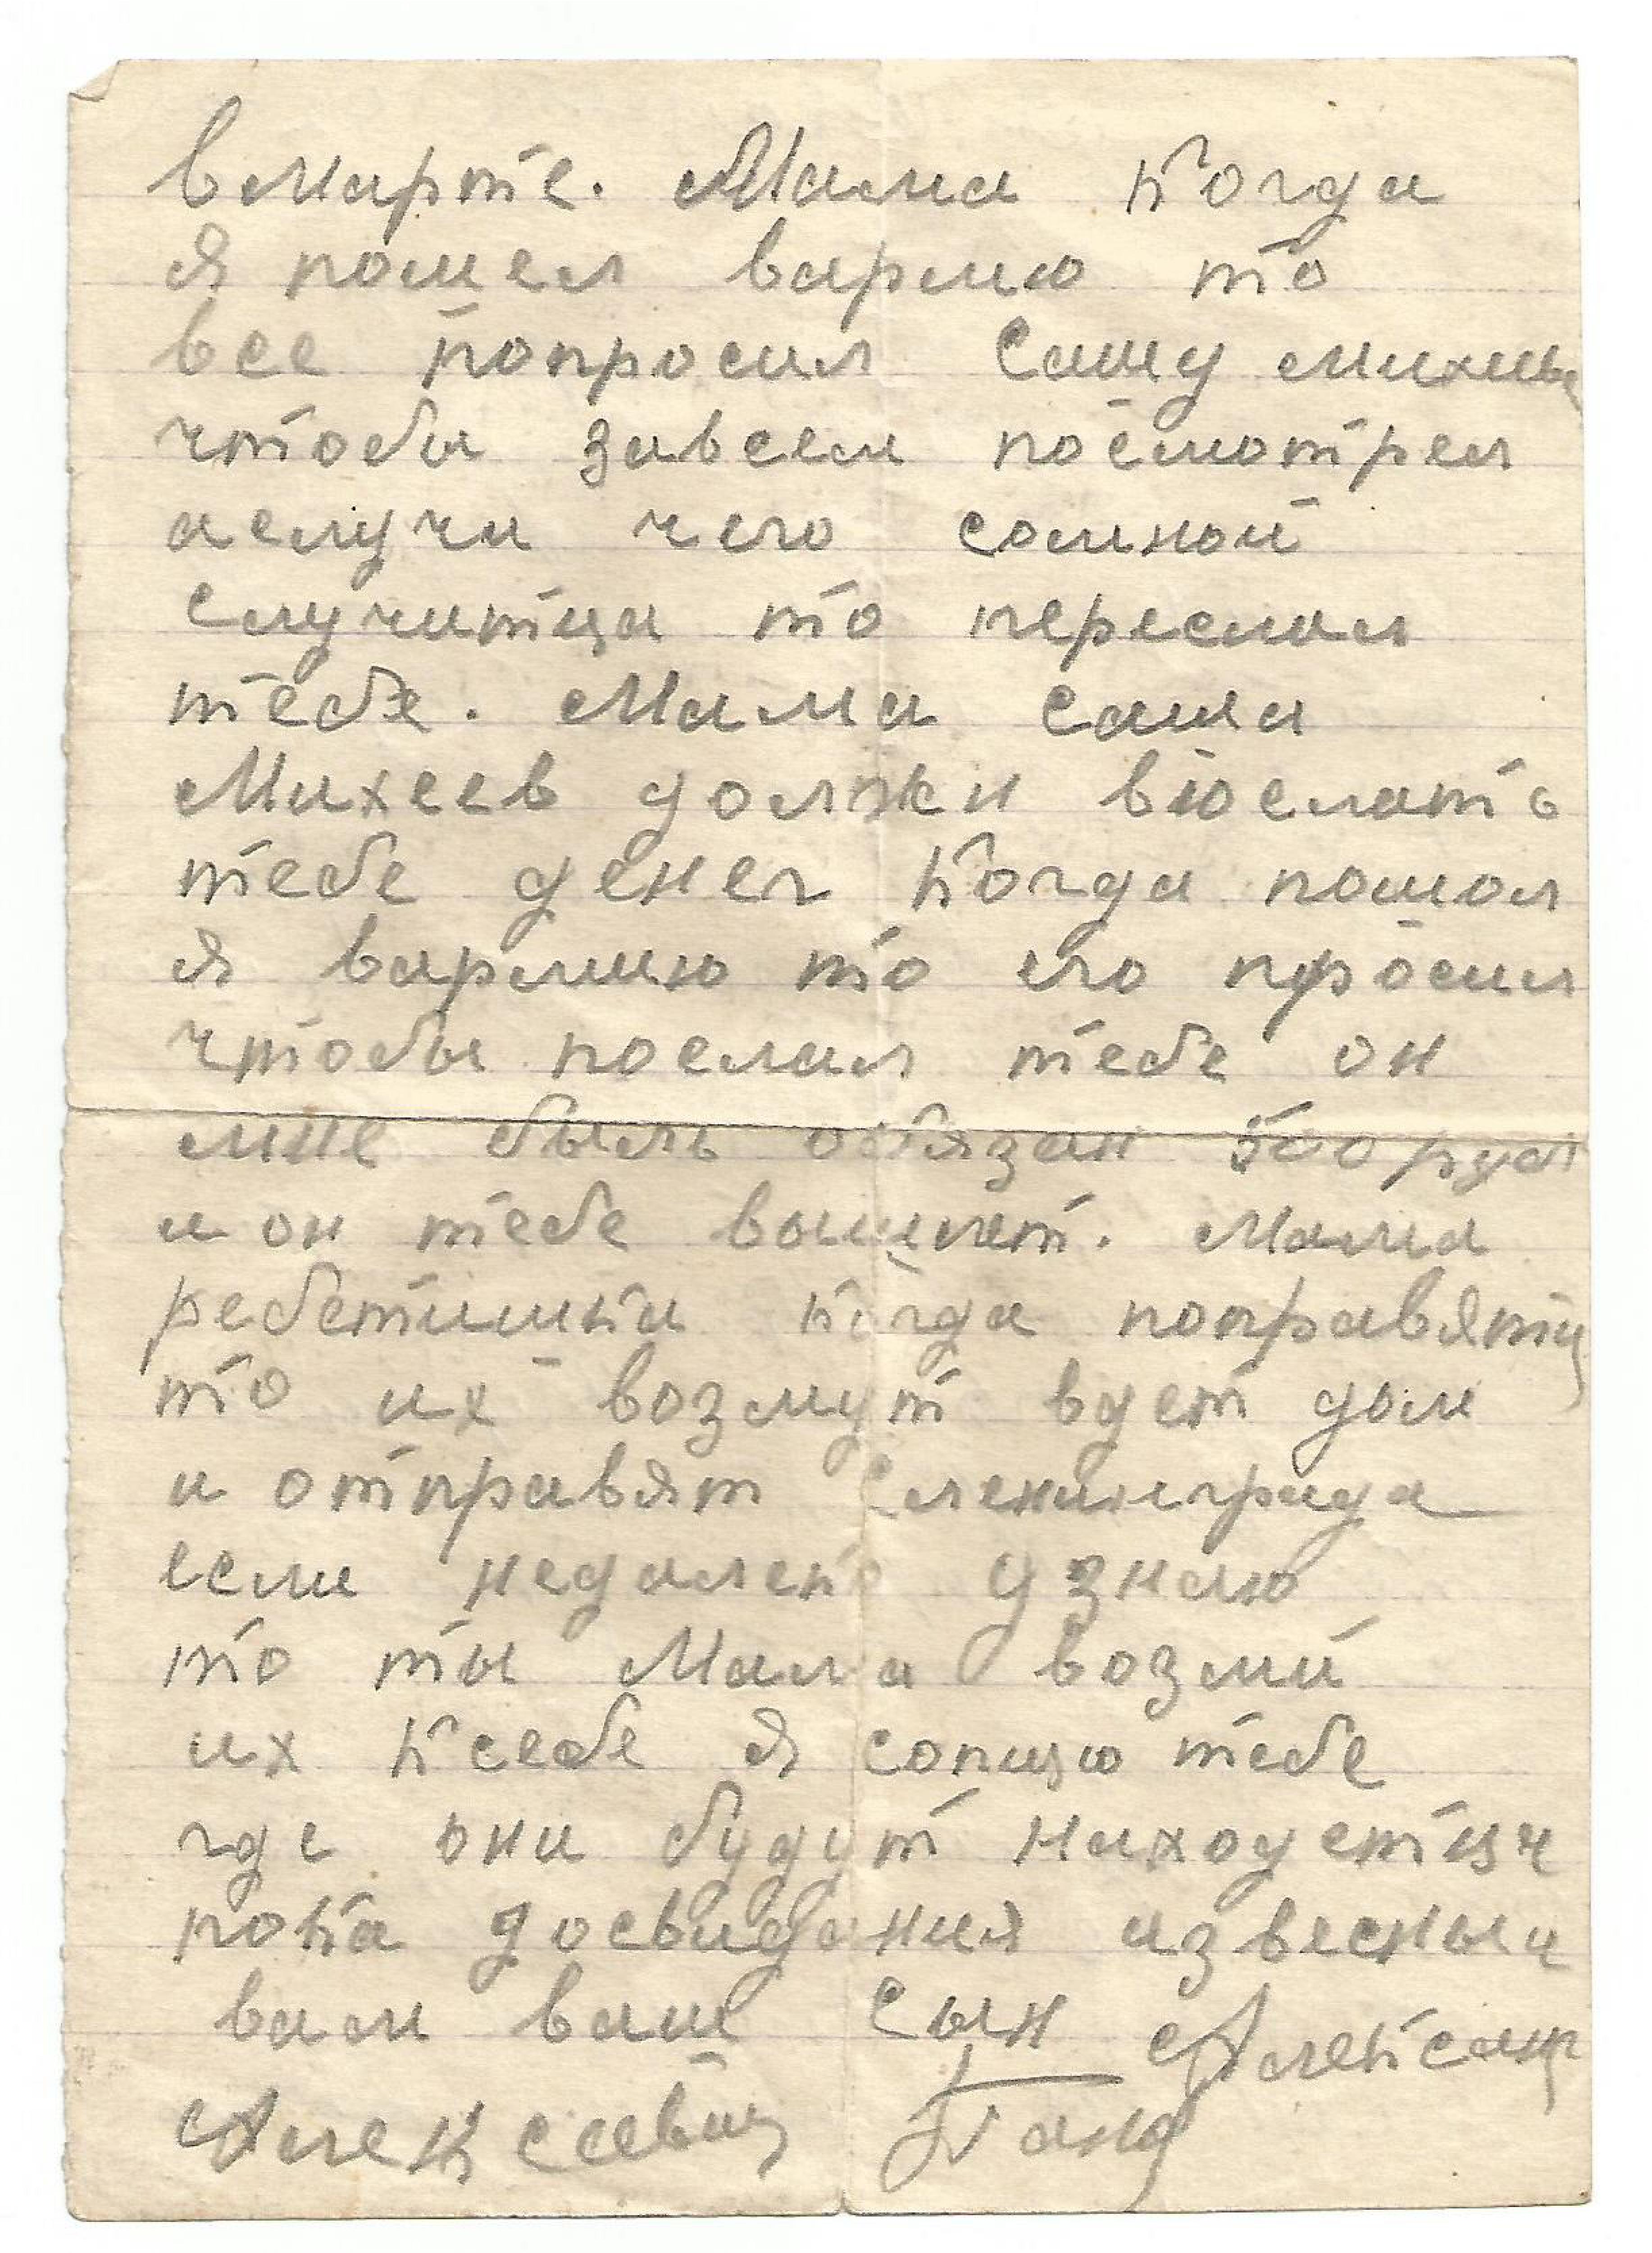 вмарте. Мама когда
я пошел вармю то
все попросил Сашу
чтобы завсем посмотрел
аслучи чего сомной
случитца то переслал
тебе. Мама Саша
Михеев должен выслать
тебе денег когда пошол
я вармию то его просил
чтобы послал тебе он
мне быль обязан 500 руб
и он тебе вышлет. Мама
ребетишки когда поправятц
то их возмут вдет дом
и отправят Сленинграда
если недалеко узнаю
то ты Мама возми
их ксебе я сопщю тебе
где они будут находетцч
пока досвидания извесный
вам ваш сын Александ
Алексеевич